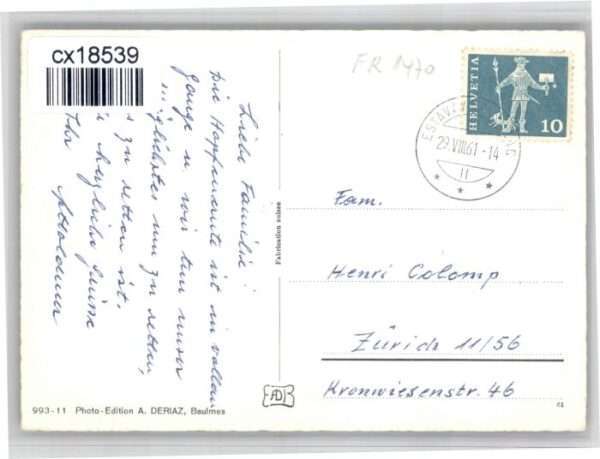 cx18539
FR 1470
HELVETIA
10
ESTAVAY
29.VIII.61-14
11
Liebe Familie!
Die Hopfenernte ist in vollem
Gange u wir tun unser
zu retten,
zu retten ist.
herzliche Grüsse
Ihr
Fabrication suisse
Fam.
Henri Colomp
Zürich 11/56
Kronwiesenstr. 46
AD
993-11 Photo-Edition A. DERIAZ, Baulmes